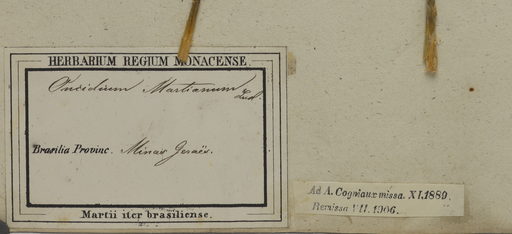 HERBARIUM REGIUM MONACENSE.
Oncidium Martianum Lindl.
Brasilia Provinc. Minas Geraës.
Martii iter brasiliense.
Ad A. Cogniaux missa. XI.1889.
Remissa VII. 1906.